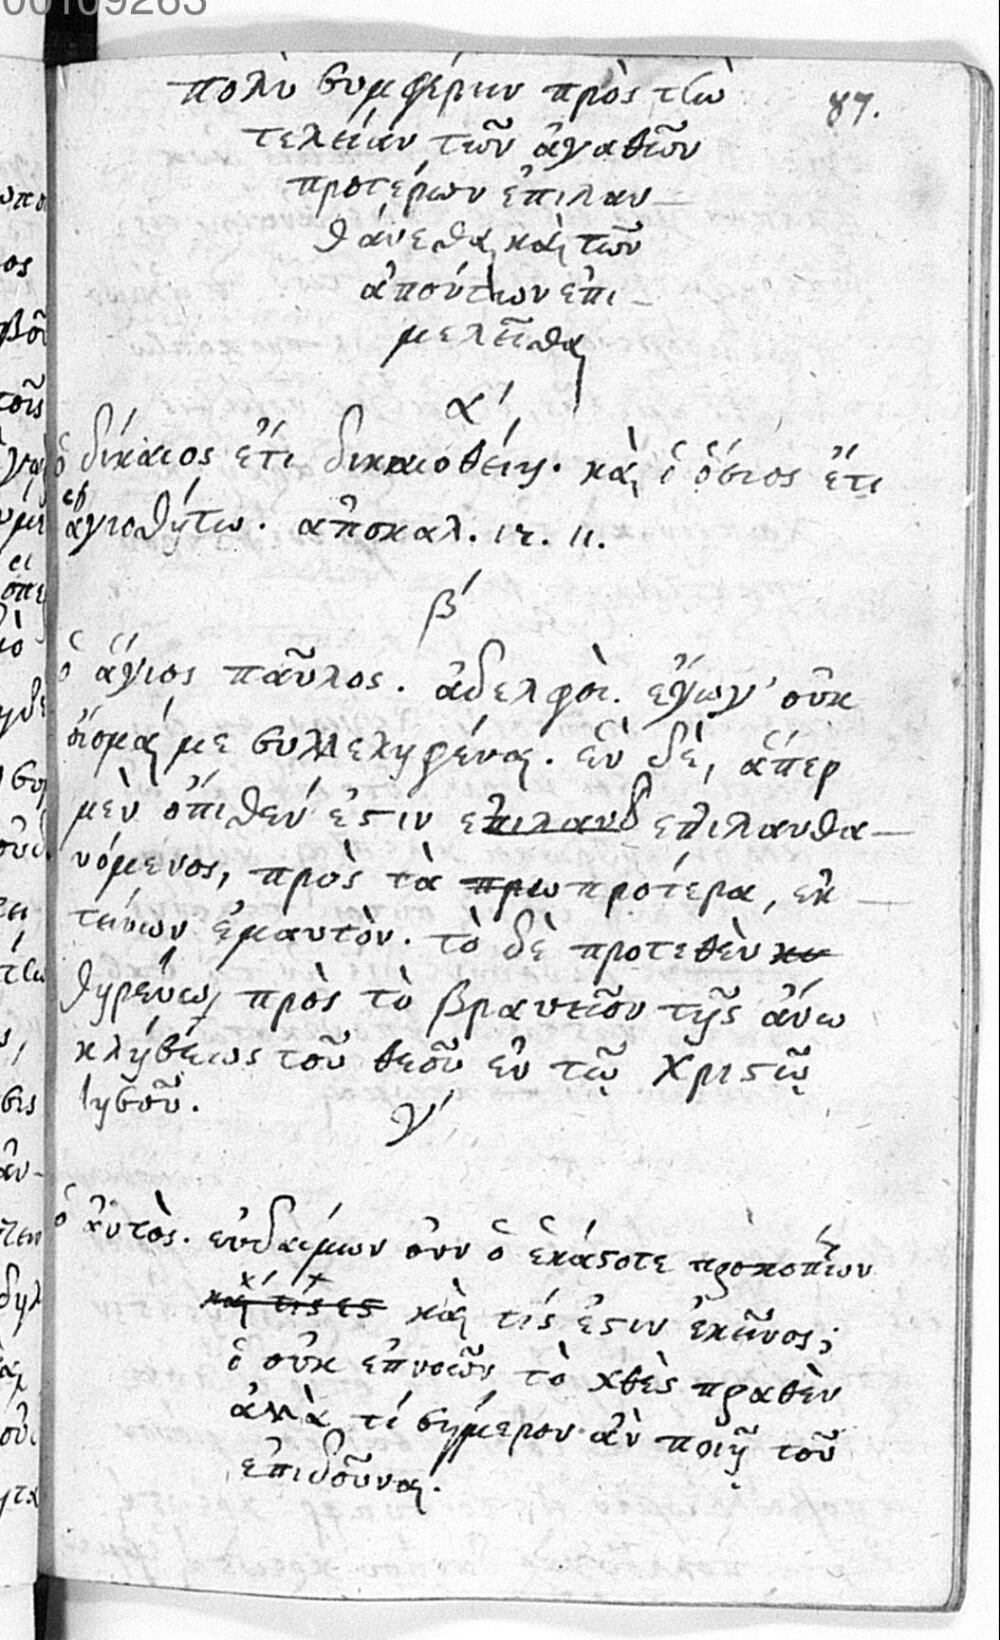 00109263
πολὺ συμφέρειν πρὸς τὴν
87.
τελείαν τῶν ἀγαθῶν
προτέρων ἐπιλαν-
θάνεσθαι καὶ τῶν
ἀπούντων ἐπι-
μελεῖσθαι
α΄
ὁ δίκαιος ἔτι δικαιοθείη. καὶ ὁ ὅσιος ἔτι
ἁγιοσθήτω. ἀποκαλ. 12. 11.
β΄
ὁ ἅγιος παῦλος. ἀδελφοὶ. ἔγωγ' οὐκ
οἴομαί με συλλεληφέναι. ἓν δὲ, ἅπερ
μὲν ὄπισθέν ἐστιν ἐπιλανθ ἐπιλανθα-
νόμενος, πρὸς τὰ πρω πρότερα, ἐκ-
τείνων ἐμαυτὸν. τὸ δὲ προτεθὲν κυ
θηρεύω, πρὸς τὸ βραυεῖον τῆς ἄνω
κλήσεως τοῦ θεοῦ ἐν τῷ Χριστῷ
Ἰησοῦ.
γ΄
ὁ ἀυτὸς. εὐδαίμων οὖν ὁ ἑκάστοτε προκοπίων
καὶ τίς ἐς καὶ τίς ἐστιν ἐκεῖνος;
ὁ οὐκ ἐπνοεῶς τὸ χθὲς πραθὲν
ἀλλὰ τί σήμερον ἂν ποιῇ τοῦ
ἐπιδοῦναι.